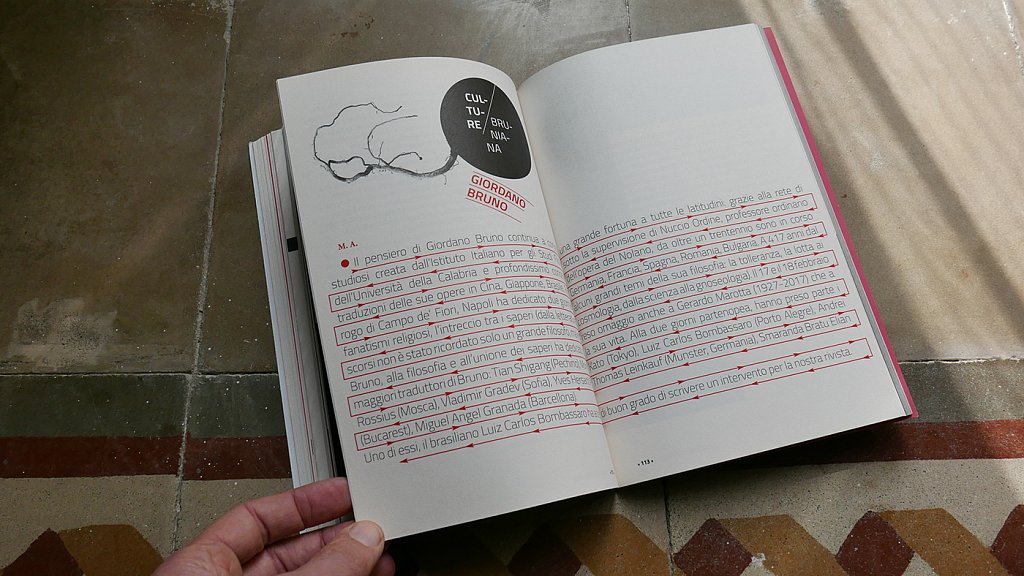 CUL-
TU-
RE
/BRU-
NIA-
NA
GIORDANO
BRUNO
M. A.
Il pensiero di Giordano Bruno continua a una grande fortuna a tutte le latitudini, grazie alla rete di
studiosi creata dall'Istituto Italiano per gli la supervisione di Nuccio Ordine, professore ordinario
dell'Università della Calabria e profondissimo dell'opera del Nolano, da oltre un trentennio sono in corso
traduzioni delle sue opere in Cina, Giappone, Germania, Francia, Spagna, Romania, Bulgaria. A 417 anni dal
rogo di Campo de' Fiori, Napoli ha dedicato due grandi temi della sua filosofia: la tolleranza, la lotta ai
fanatismi religiosi, l'intreccio tra i saperi (dalla cosmologia, dalla scienza alla gnoseologia). Il 17 e il 18 febbraio
scorsi non è stato ricordato solo un grande filosofo, omaggio anche a Gerardo Marotta (1927-2017) che a
Bruno, alla filosofia e all'unione dei saperi ha sua vita. Alla due giorni partenopea, hanno preso parte i
maggiori traduttori di Bruno: Tian Shigang (Tokyo), Luiz Carlos Bombassaro (Porto Alegre), Andrei
Rossius (Mosca), Vladimir Gradev (Sofia), Yves Leinkauf (Munster, Germania), Smaranda Bratu Elian
(Bucarest), Miguel Angel Granada (Barcellona).
Uno di essi, il brasiliano Luiz Carlos Bombassaro ha di buon grado di scrivere un intervento per la nostra rivista.
• 113 •